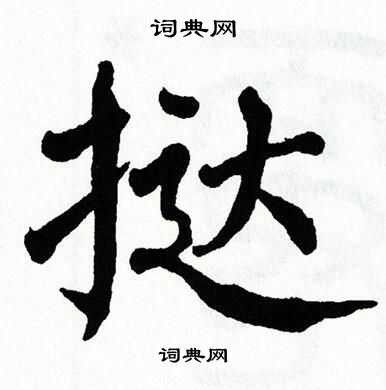 词典网
挞
词典网